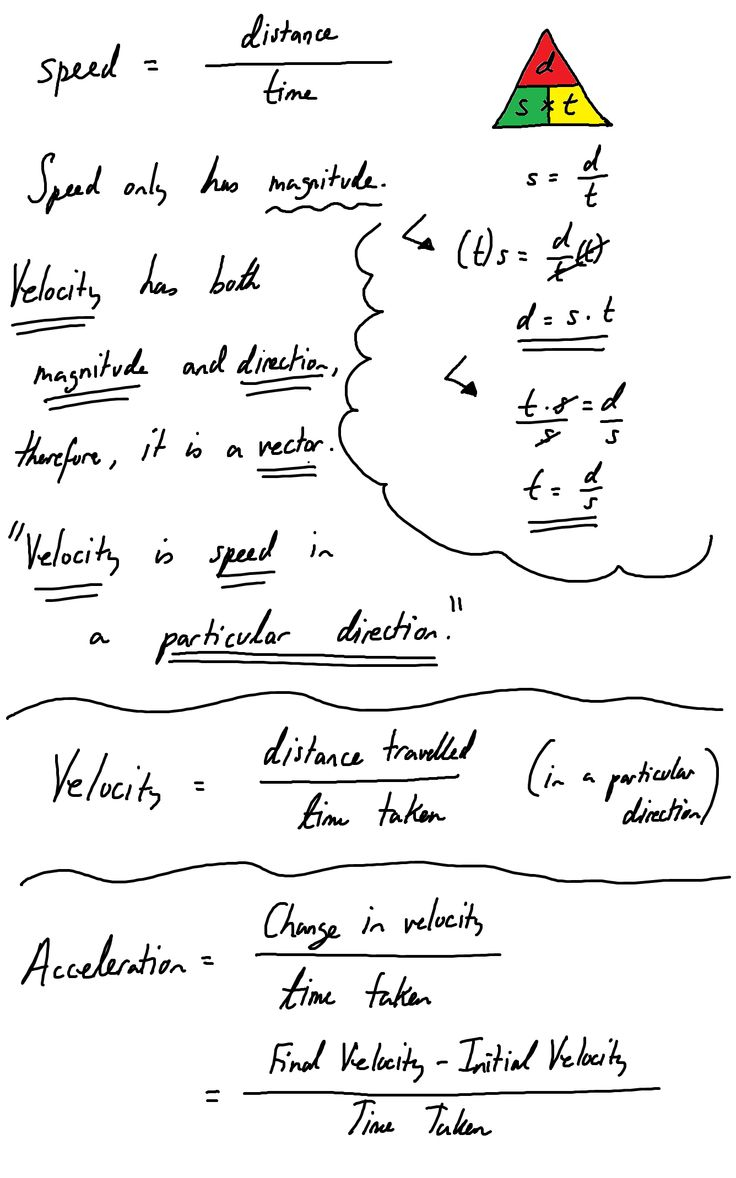 speed = distance / time
d
s × t
Speed only has magnitude.
s = d / t
(t) s = d / t (t)
d = s . t
t . s / s = d / s
t = d / s
Velocity has both
magnitude and direction,
therefore, it is a vector.
"Velocity is speed in
a particular direction."
Velocity = distance travelled / time taken (in a particular direction)
Acceleration = Change in velocity / time taken
= Final Velocity - Initial Velocity / Time Taken